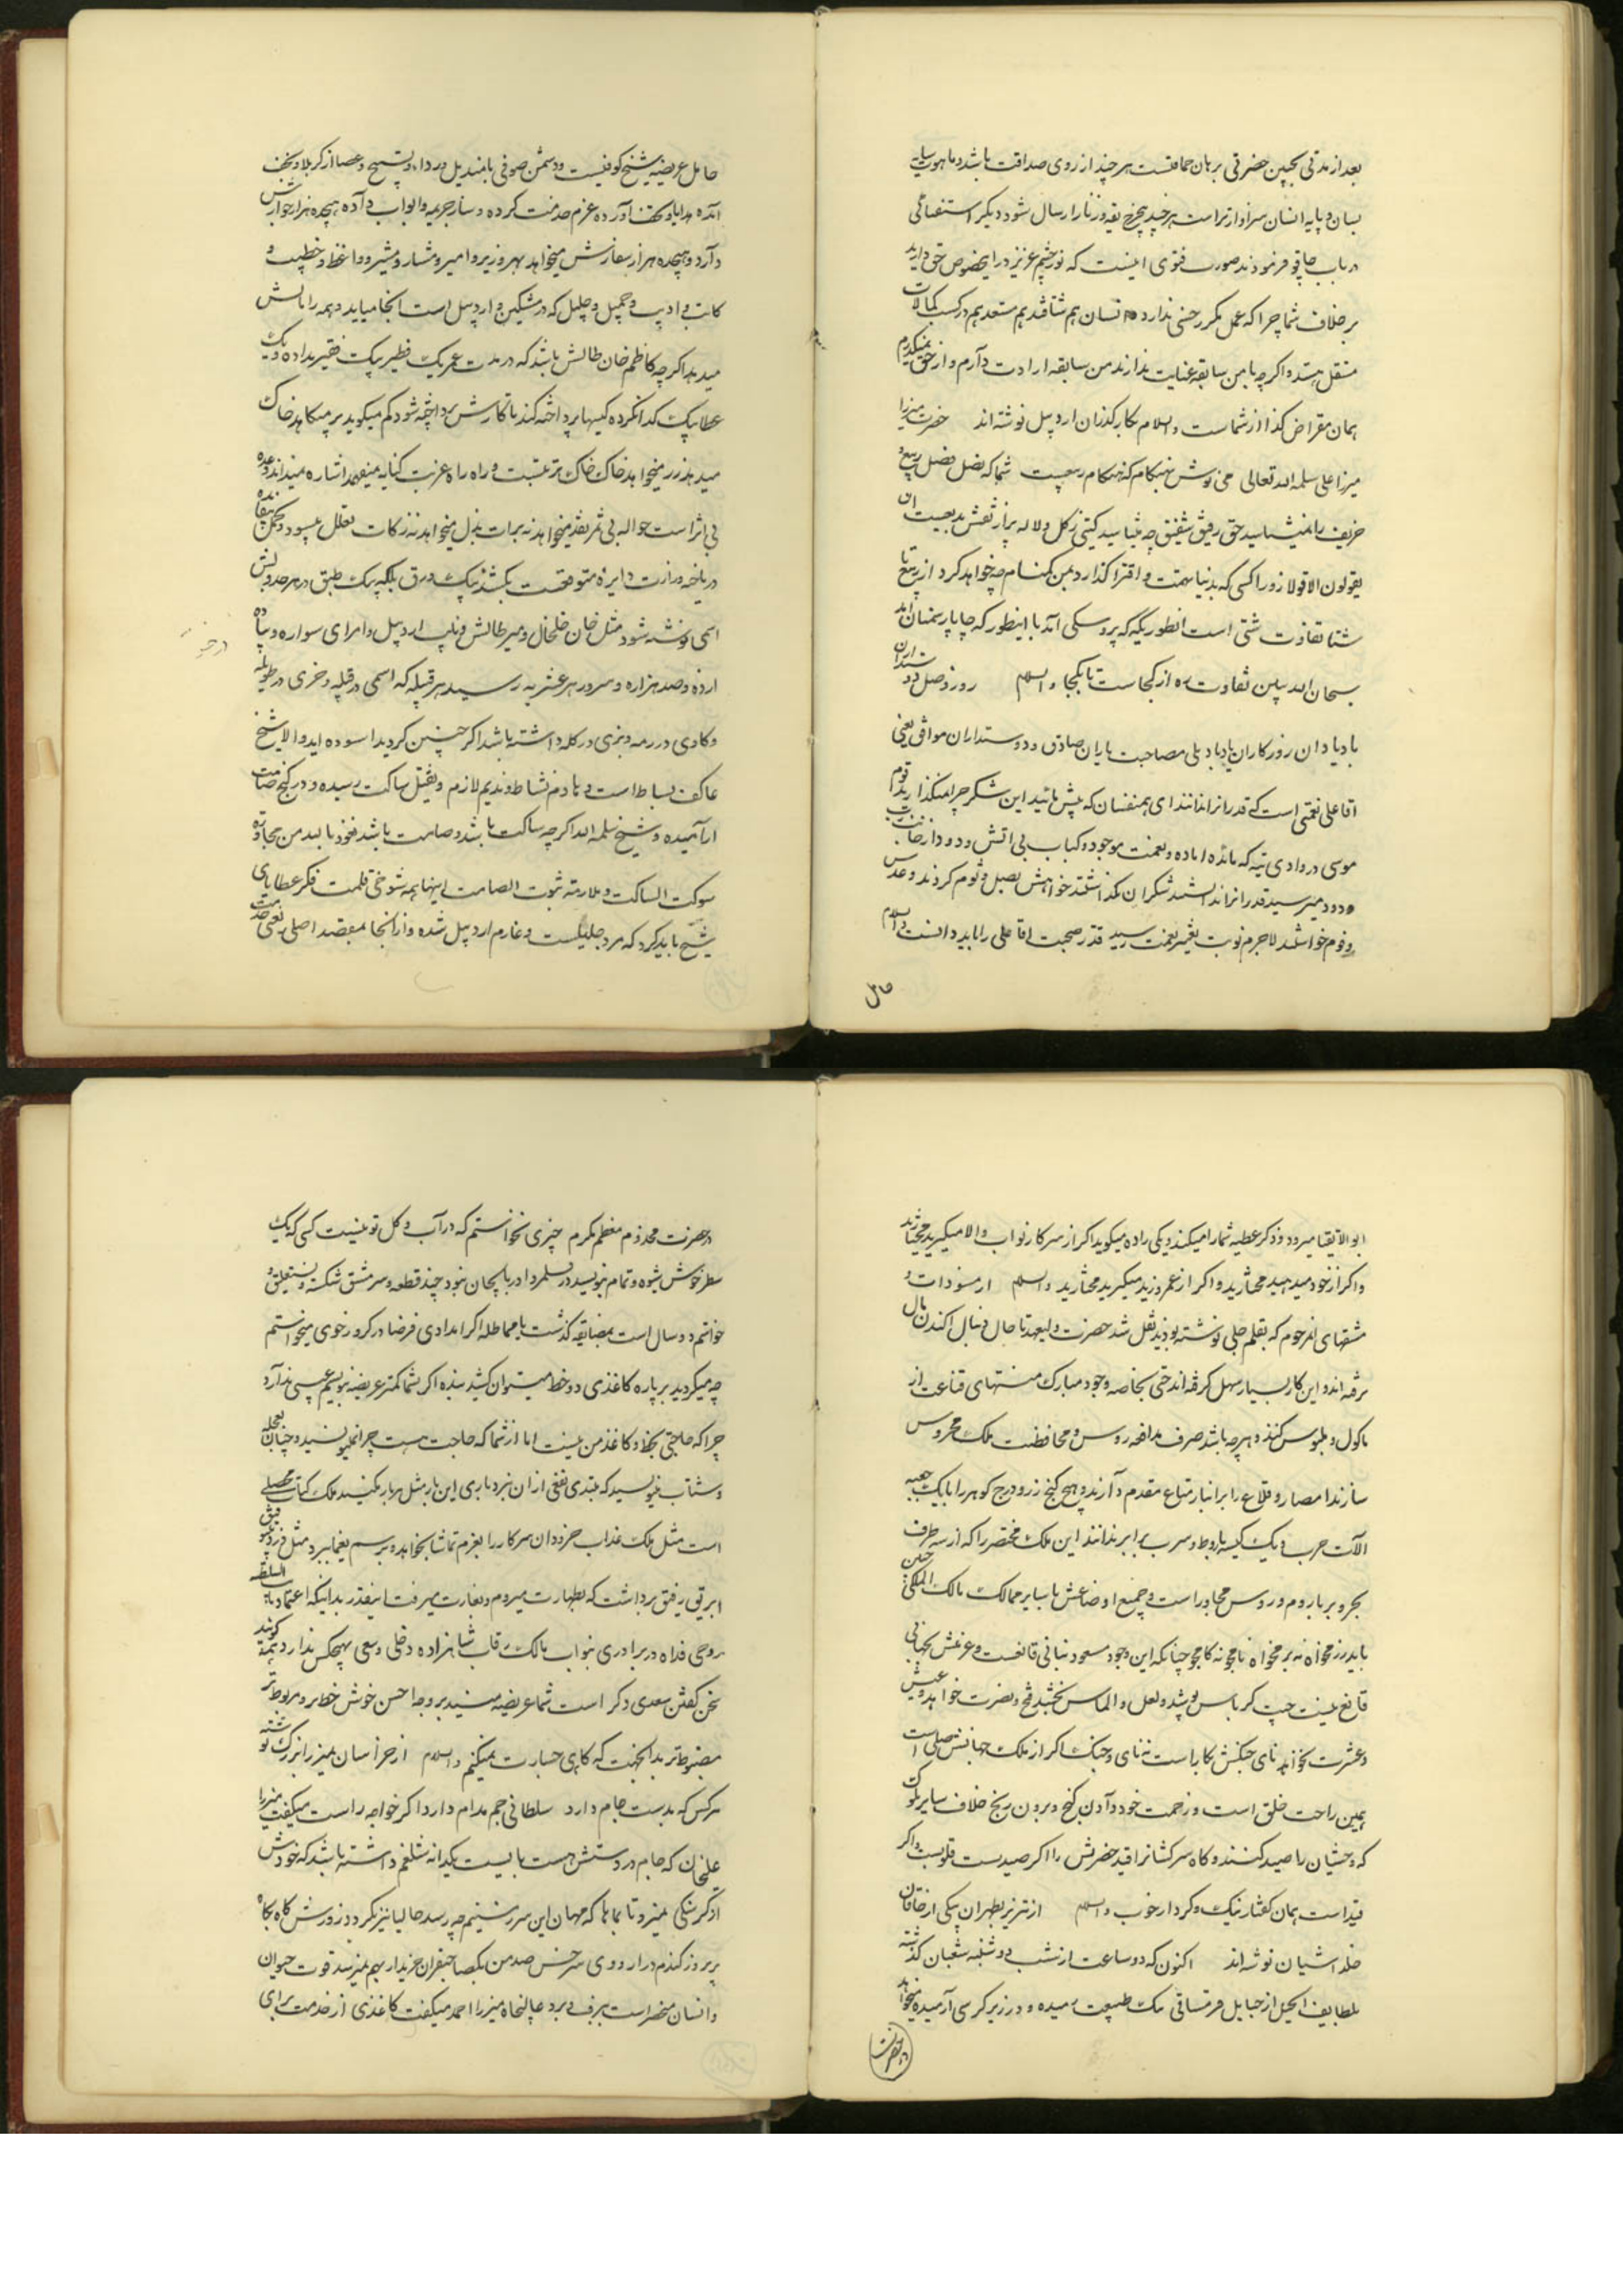 بعد از مدتی بچنین حضرتی برهان حماقتست هرچند از روی صداقت باشد
بسان و پایه انسان سزاوارتر است هر چند ارسال شود دیگر استفتائی
در باب چاقو فرمودند صورت فتوی اینست که نور چشم عزیز در این خصوص حق دارید
بر خلاف شما چرا که عمل مکرر حسنی ندارد هم مستعد هم در کسب کمالات
منتقل شده و اگرچه با من سابقه عنایت ندارند من سابقه ارادت دارم و از حق نمیگذرم
همان مقراض کذا از شماست والسلام بکارگذاران اردبیل نوشته‌اند حضرت میرزا
میرزا علی سلمه الله تعالی می نوش بهنگام که هنگام ربیعست شما که فضل فضل ربیع و
خریف را نمیشناسید حق رفیق شفیق چه میشناسید گیتی ز گل و لاله پر از نقش بدیعست ان
یقولون الا قولا زورا کسی که بدنیا تهمت و افترا گذارد بمن گمنام چه خواهد کرد از ربیع تا
شتا تفاوت شتی است انطوریکه که پروسکی آمد با اینطور که چاپار پنهان آید
سبحان الله ببین تفاوت ره از کجاست تا بکجا والسلام روز وصل دوستداران
یاد باد یاد باد ان روزکاران یاد باد بلی مصاحبت یاران صادق و دوستداران موافق یعنی
اقا علی نعمتی است که قدر انرا ندانند ای همنفسان که پیش مائید این شکر چرا نمیگذارید قوم
موسی در وادی تیه که مائده اماده و نعمت موجود و کباب بی اتش و دود از جانب
ودود میرسید قدر انرا ندانستند شکر ان نگذاشتند خواهش بصل و ثوم کردند و عدس
و فوم خواستند لاجرم نوبت تغییر نعمت رسید قدر صحبت اقا علی را باید دانست والسلام
حامل
حامل عریضه شیخ کوفیست و دشمن صوفی با مندیل و ردا و تسبیح و عصا از کربلا و نجف
آمده هدایا و تحف آورده عزم خدمت کرده و ساز جریمه و ابواب داده هیجده هزار خواهش
دارد و هیجده هزار سفارش میخواهد بهر وزیر و امیر و مشار و مشیر و واعظ و خطیب و
کاتب و ادیب و جمیل و جلیل که در مشکین و اردبیل است انجا میاید و همه را مالش
میدهد اگرچه کاظم خان طالش باشد که در مدت عمر یک فطیر بیک فقیر نداده و یک
عطا بیک گدا نکرده کیسها پرداخته کند تا کارش پرداخته شود کم میگوید پر میکاهد خاک
میدهد زر میخواهد خاک خاک تربتست و راه راه غربت کنایه میفهمد اشاره میداند وعده
بی اثر است حواله بی ثمر نقد میخواهد نه برات بذل میخواهد نه زکات
در باغه وزارت دایره متوقعست بکشند یک ورق بلکه یک طبق در هر جدولش
اسمی نوشته شود مثل خان خلخال و میر طالش و نایب اردبیل و امرای سواره و پیاده
ارده و صد هزاره و سرور هر عشیره رسید هر قبیله که اسمی در قبیله و خری در طویله
و گاوی در رمه و بزی در گله داشته باشد اگر چنین کردید اسوده اید والا شیخ
عاکف بساط است و نادم نشاط و ندیم لازم و ثقیل ساکت رسیده و در کنج صامت
آرامیده و شیخ سلمه الله اگرچه ساکت باشد و صامت باشد نعوذ بالله من مجاورة
سوکت الساکت و ملازمة ثبوت الصامت اینها همه شوخی قلمست فکر عطایای
شیخ باید کرد که مرد جلیلست و عازم اردبیل شده و از انجا بمقصد اصلی یعنی خدمت
ابوالاتقیا میرود و ذکر عطیه شما را میکند و یکی را ده میگوید اگر از سرکار نواب والا میگیرید مختارید
و اگر از خود میدهید مختارید و اگر از عمر و زید میگیرید مختارید والسلام از مسودات و
مشقهای انمرحوم که بقلم جلی نوشته بودند نقل شد حضرت ولیعهد تا حال دنبال اکندن مال
نرفته اند و این کار بسیار سهل گرفته اند حتی بخاصه وجود مبارک منتهای قناعت از
ماکول و ملبوس کنند و هرچه باشد صرف مدافعه روس و محافظت ملک محروس
سازند امصار و قلاع را بر انبار متاع مقدم دارند و هیچ گنج زر و درج گوهر را با یک جعبه
آلات حرب و یک کیسه باروط و سرب برابر ندانند این ملک مختصر را که از سه طرف
بحر و بر با روم و روس مجاور است و جمیع اوضاعش با سایر ممالک مالک الملکی چنین
باید رزمخواه نه بزمخواه نامجو نه کامجو چنانکه این وجود مسعود بنانی قانعست و عزمش بجهانی
قانع نیست چیت کرباس پوشد و لعل و الماس بخشد فتح و نصرت خواهد و عیش
و عشرت نخواهد نای جنگش بکار است نه نای و چنگ اگر از ملک جهانش حاصلی است
همین راحت خلق است و زحمت خود و دادن گنج و بردن رنج خلاف سایر ملوک
که وحشیان را صید کنند و گاه سرکشانرا قید حضرتش را اگر صیدیست قلوبست و اگر
قید است همان گفتار نیک و کردار خوب والسلام از تبریز بطهران بیکی از خاقان
خلد اشیان نوشته‌اند اکنون که دو ساعت از شب دوشنبه شعبان گذشته
بلطایف الحیل از حبایل ملک طبیعت رمیده و در زیر کرسی آرمیده میخواهد
در حضرت
در حضرت مخدوم معظم مکرم چیزی نخواستم که در آب و گل تو نیست کسی که یک
سطر خوش شیوه و تمام بنویسد در قلمرو اذربایجان نبود چند قطعه و سرمشق شکسته و نستعلیق و
خواستم دو سال است بمضایقه گذشت یا مماطله اگر امدادی فرضا در کرور خوی میخواستم
چه میکردید بر پاره کاغذی دو خط میتوان کشید بنده اگر بشما کمتر عریضه بنویسم عیبی ندارد
چرا که حاجتی بخط و کاغذ من نیست اما از شما که حاجت هست چرا نمینویسید و چنان بعجله
و شتاب بنویسید که مبتدی نفعی از ان نبرد باری این بار مثل هر بار نکنید ملک کتاب محصلی
است مثل ملک عذاب خرد دان سرکار را بعزم تماشا بخواهد و برسم یغما ببرد مثل
ابریق رفیق برداشت که بطهارت میروم و بغارت میرفت اینقدر بدانیکه اعتماد السلطنه
روحی فداه در برادری بنواب مالک رقاب شاهزاده دخلی و سعی بهیچکس ندارد همه گویند
سخن گفتن سعدی دگر است شما عریضه میسند بر وجه احسن خوش خط‌تر و مربوط‌تر
مضبوط‌تر بدانجهت که گاهی جسارت میکنم والسلام از خراسان بمیرزا بزرگ نوشته
هر کس که بدست جام دارد سلطانی جم مدام دارد اگر خواجه راست میگفت میرزا
علیخان که جام در دستش هست بایست یکدانه شلغم داشته باشد که خودش
از گرسنگی نمیرد تا بماها که مهمان این سرزمینیم چه رسد حالیا نیز نکرد روزش گاه بگاه
پریروز گندم در اردوی سرخس صد من بیکصاحبقران خریدار بهم نمیرسد قوت حیوان
و انسان منحصر است ببرف و برد عالیجاه میرزا احمد میگفت کاغذی از خدمت برای